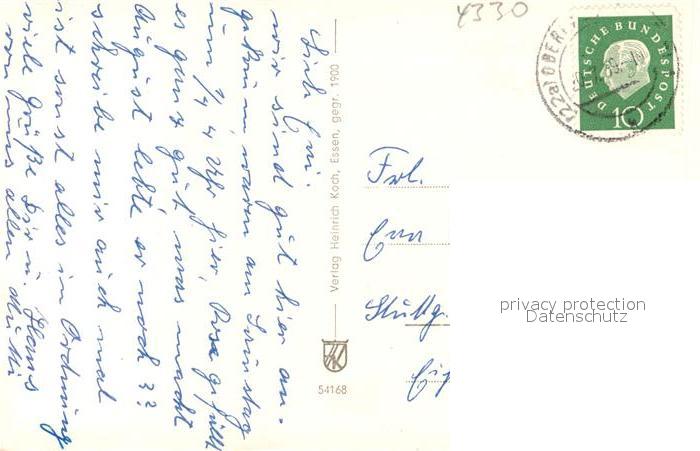 Liebe Evi.
wir sind gut hier an-
gekommen waren am Samstag
um 1/4 4 Uhr hier, Rosa gefällt
es ganz gut was macht
August lebt er noch ??
schreibe mir auch mal
ist sonst alles in Ordnung
viele Grüße Dir u. Hans
von uns allen Mutti
Verlag Heinrich Koch, Essen, gegr. 1900
54168
4330
DEUTSCHE BUNDESPOST
10
Frl.
Stuttg.
privacy protection
Datenschutz